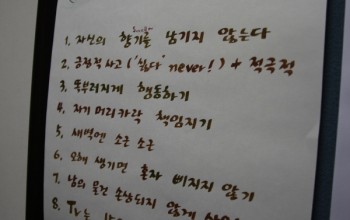 1. 자신의 향기를 남기지 않는다
2. 긍정적 사고 ('싫다' never!) + 적극적
3. 똑부러지게 행동하기
4. 자기 머리카락 책임지기
5. 새벽엔 소근 소근
6. 오해 생기면 혼자 삐지지 않기
7. 남의 물건 손상되지 않게
8. TV는